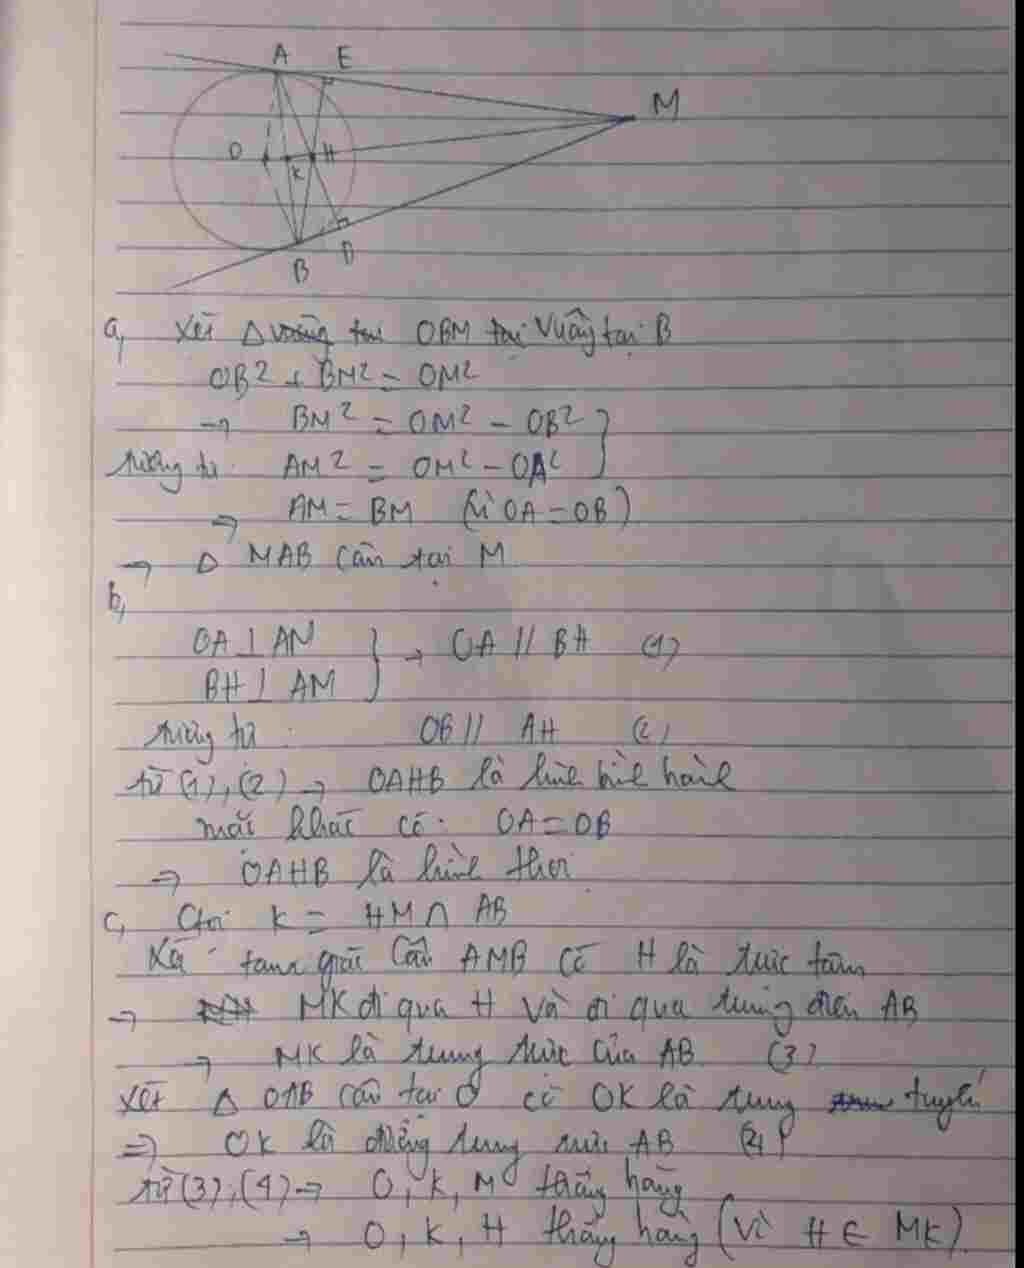 A E
M
O K H
B D
a, Xét Δ vuông tại OBM tại vuông tại B
OB² + BM² = OM²
→ BM² = OM² - OB²
tương tự AM² = OM² - OA²
⇒ AM = BM (vì OA = OB)
→ Δ MAB cân tại M
b,
OA ⊥ AM
BH ⊥ AM } → OA // BH (1)
tương tự : OB // AH (2)
từ (1), (2) → OAHB là hình bình hành
mặt khác có: OA = OB
⇒ OAHB là hình thoi
c, Gọi K = HM ∩ AB
Xét tam giác cân AMB có H là trực tâm
→ MK đi qua H và đi qua trung điểm AB
→ MK là trung trực của AB (3)
Xét Δ OAB cân tại O có OK là trung tuyến
⇒ OK là đường trung trực AB (4)
từ (3), (4) → O, K, M thẳng hàng
→ O, K, H thẳng hàng (vì H ∈ MK).